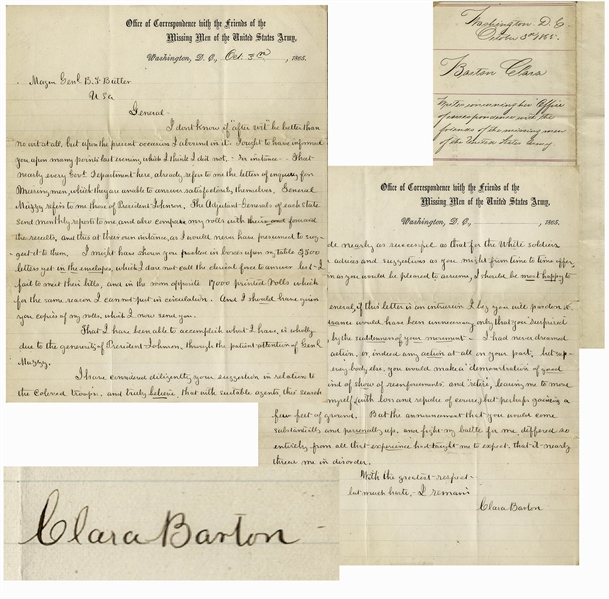 Office of Correspondence with the Friends of the
Missing Men of the United States Army,
Washington, D. C., Oct. 3rd, 1865.
Major Genl B. F. Butler
U S a
General
I dont know if "after wit" be better than
no wit at all, but upon the present occasion I abound in it. I ought to have informed
you upon many points last evening which I think I did not, - In instance - That
nearly every Govt. Department here, already refer to me the letters of inquiry for
Missing men, which they are unable to answer satisfactorily themselves. General
Muzzy refers to me those of President Johnson. The Adjutant Generals of each State
send monthly reports to me and also compare my rolls with theirs and forward
the results, and this at their own instance, as I would never have presumed to sug-
gest it to them. I might have shown you in boxes upon my table 3500
letters yet in the envelopes, which I dare not call the clerical force to answer lest I
fail to meet their bills, and in the room opposite 17000 printed Rolls which
for the same reason I cannot put in circulation. And I should have given
you copies of my rolls, which I now send you.
That I have been able to accomplish what I have, is wholly
due to the generosity of President Johnson, through the patient attention of Genl
Muzzy.
I have considered diligently your suggestion in relation to
the Colored troops, and truly believe, that with suitable agents, this search
Washington D. C.
October 3rd 1865.
Barton Clara
Writes concerning her Office
of correspondence with the
friends of the missing men
of the United States Army
Office of Correspondence with the Friends of the
Missing Men of the United States Army,
Washington, D. C., , 1865.
de nearly as successful as that for the White soldiers
advice and suggestions as you might from time to time offer,
n as you would be pleased to assume, I should be most happy to
eneral, if this letter is an intrusion I beg you will pardon it.
would have been unnecessary only that you surprised
by the suddenness of your movement - I had never dreamed
action, or indeed any action at all in your part, but sup-
ery body else, you would make a demonstration of good
ind of show of reenforcements and retire, leaving me to move
myself (with loss and repulse of course) but perhaps gaining a
few feet of ground. But the announcement that you would come
substantially and personally up, and fight my battle for me differed so
entirely from all that experience had taught me to expect, that it nearly
threw me in disorder.
With the greatest respect -
but much haste, I remain
Clara Barton
Clara Barton